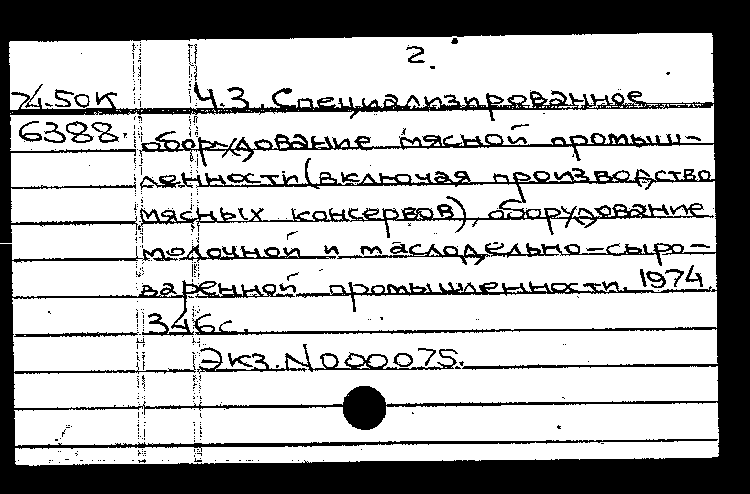 2.
74.50К Ч.3. Специализированное
6388. оборудование мясной промыш-
ленности (включая производство
мясных консервов), оборудование
молочной и маслодельно-сыро-
варенной промышленности. 1974.
346с.
Экз. N000075.